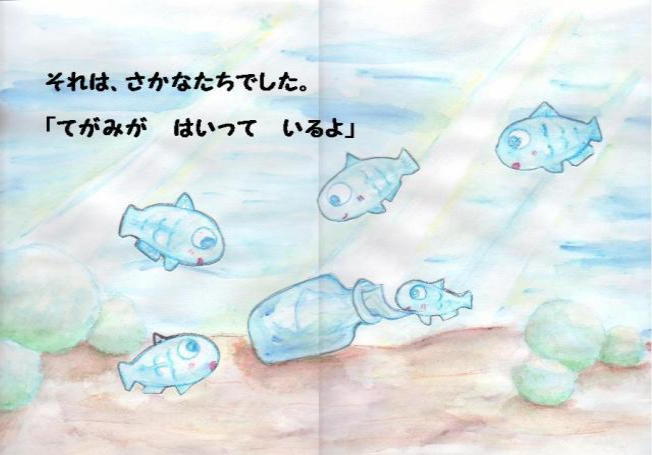 それは、さかなたちでした。
「てがみが　はいって　いるよ」